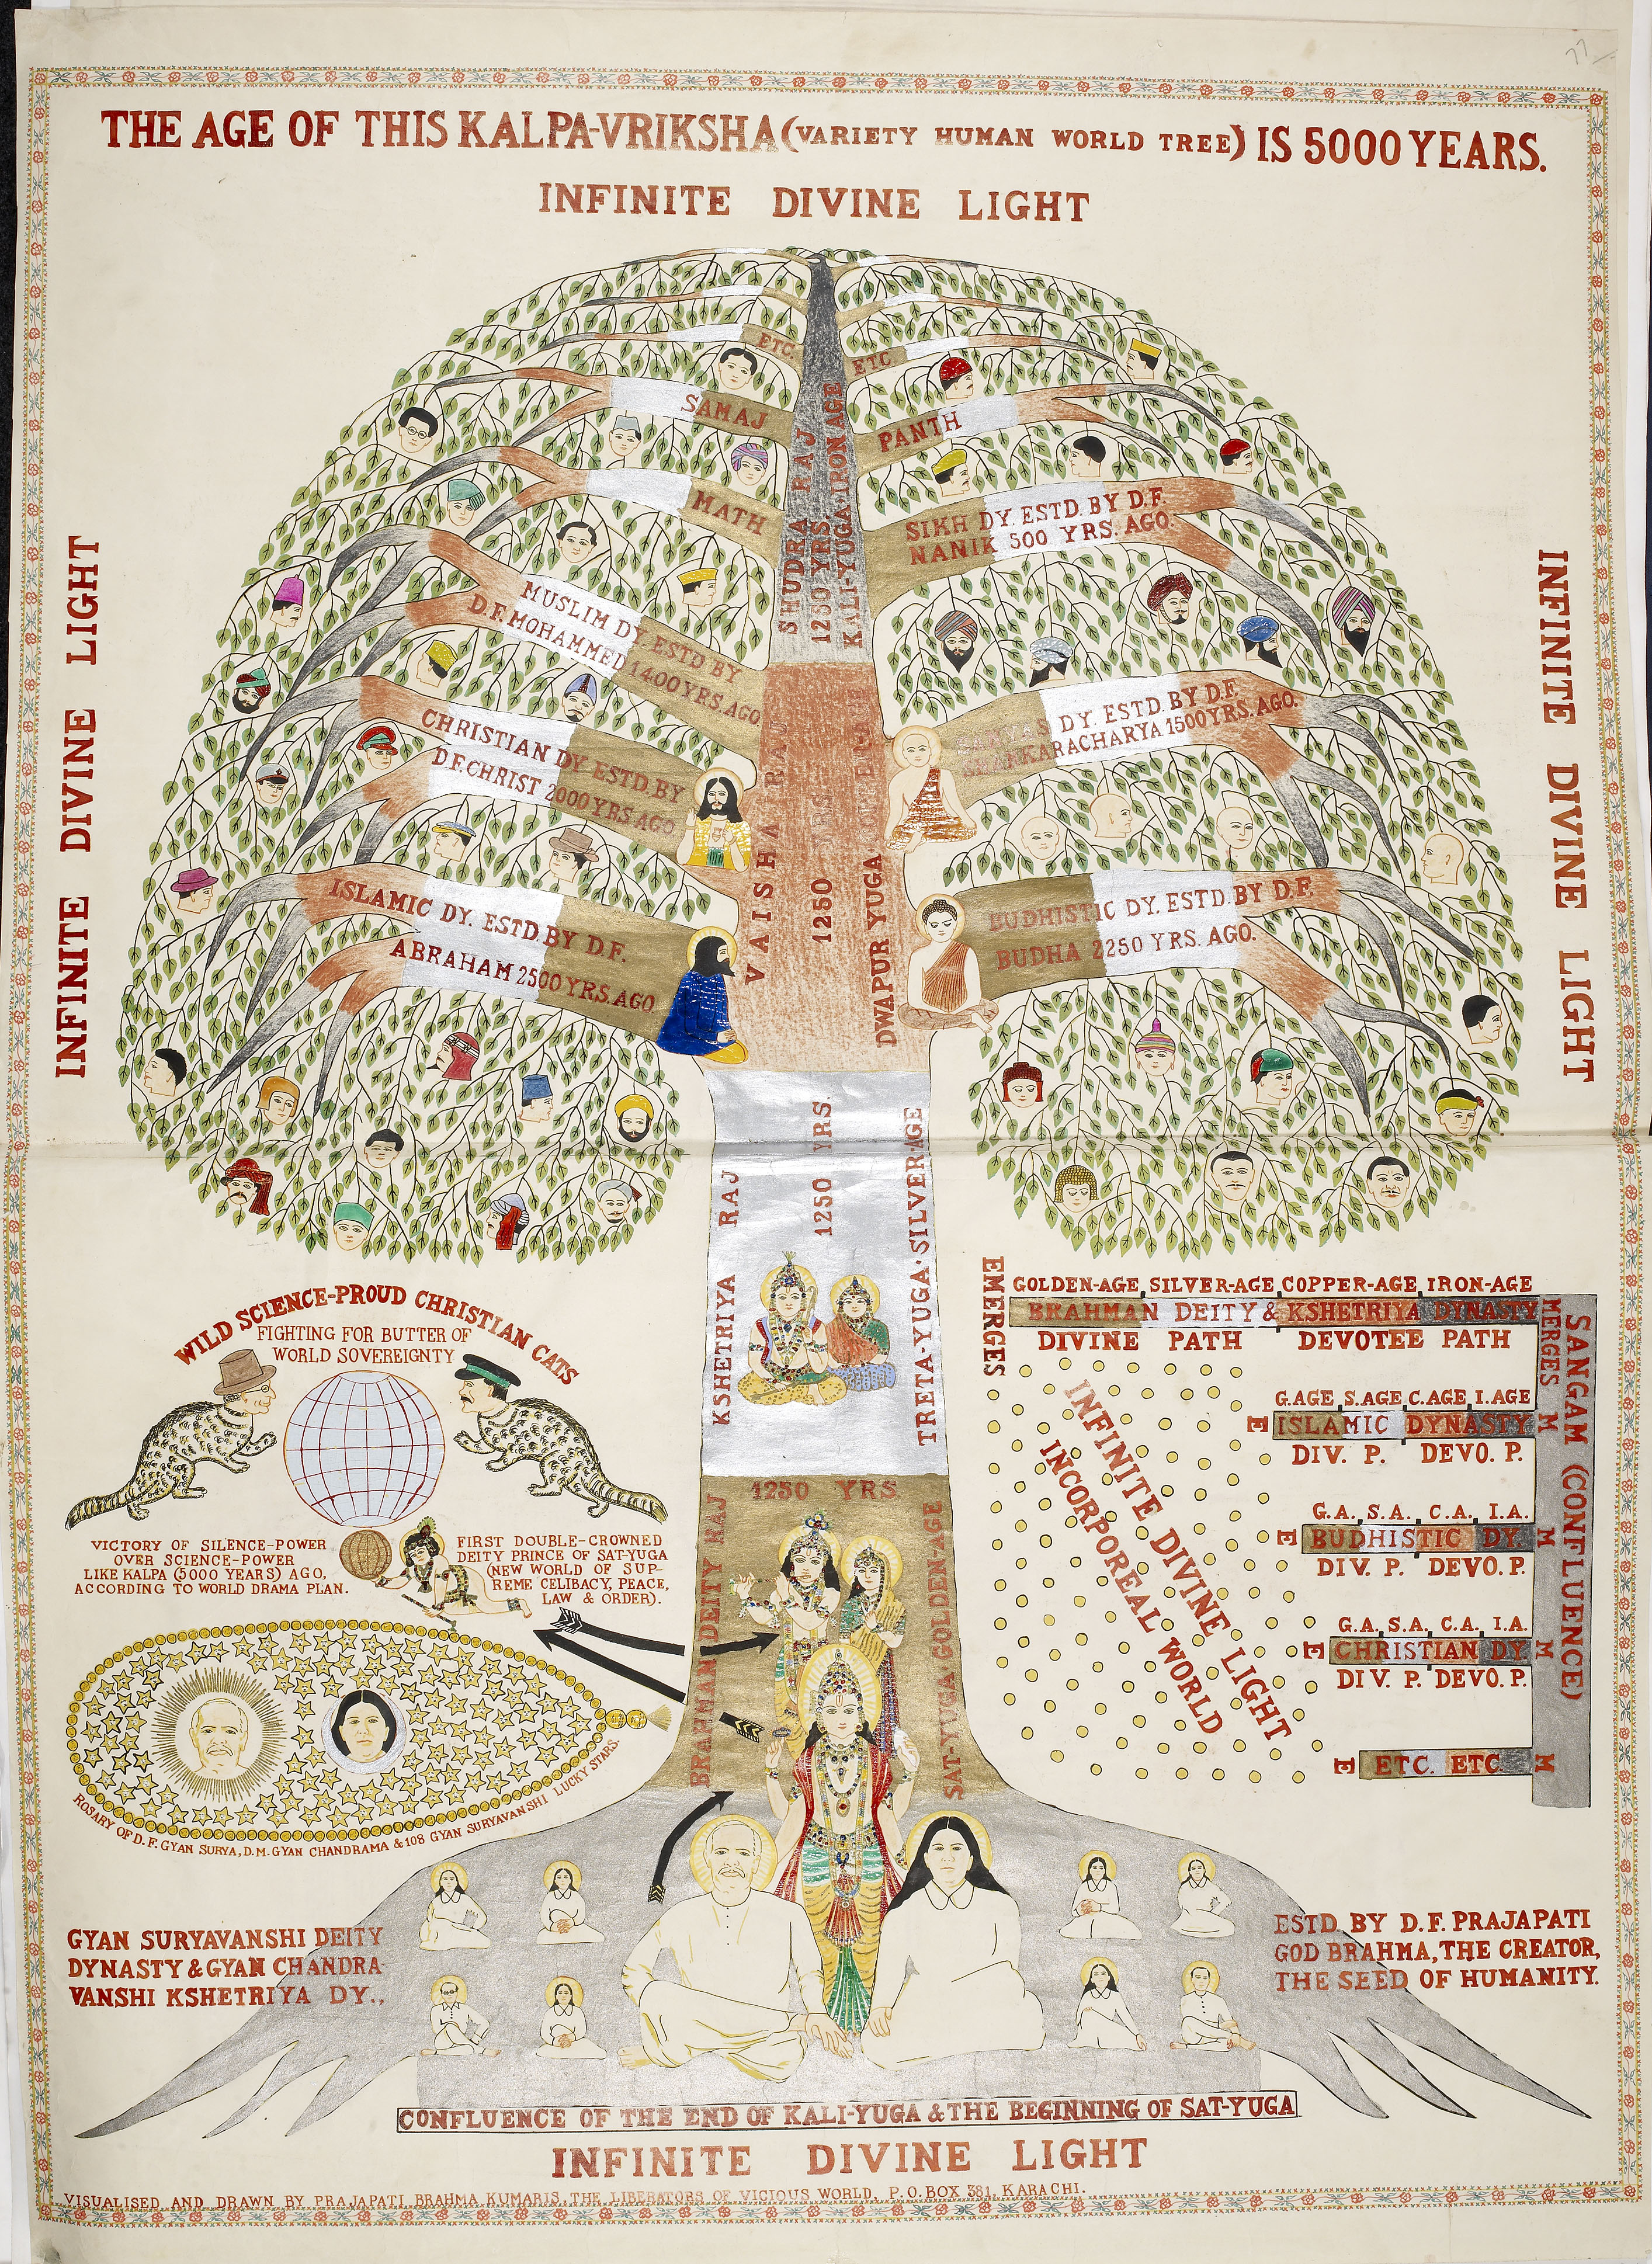 77/-
THE AGE OF THIS KALPA-VRIKSHA (VARIETY HUMAN WORLD TREE) IS 5000 YEARS.
INFINITE DIVINE LIGHT
INFINITE DIVINE LIGHT
INFINITE DIVINE LIGHT
ETC.
ETC
SAMAJ
PANTH
MATH
SIKH DY. ESTD. BY D.F.
NANIK 500 YRS. AGO.
SHUDRA RAJ
1250 YRS.
KALI-YUGA-IRON AGE
MUSLIM DY ESTD BY
D.F. MOHAMMED 1400 YRS. AGO.
DY. ESTD. BY D.F.
SHANKARACHARYA 1500 YRS. AGO.
CHRISTIAN DY ESTD. BY
D.F. CHRIST 2000 YRS. AGO
VAISHA RAJ
1250
DWAPUR YUGA
ISLAMIC DY. ESTD. BY D.F.
ABRAHAM 2500 YRS. AGO.
BUDHISTIC DY. ESTD. BY D.F.
BUDHA 2250 YRS. AGO.
KSHETRIYA RAJ
1250 YRS.
TRETA-YUGA-SILVER-AGE
WILD SCIENCE-PROUD CHRISTIAN CATS
FIGHTING FOR BUTTER OF
WORLD SOVEREIGNTY
VICTORY OF SILENCE-POWER
OVER SCIENCE-POWER
LIKE KALPA (5000 YEARS) AGO,
ACCORDING TO WORLD DRAMA PLAN.
FIRST DOUBLE-CROWNED
DEITY PRINCE OF SAT-YUGA
(NEW WORLD OF SUP-
REME CELIBACY, PEACE,
LAW & ORDER).
1250 YRS
BRAHMAN DEITY RAJ
SAT-YUGA GOLDEN-AGE
EMERGES
GOLDEN-AGE, SILVER-AGE, COPPER-AGE, IRON-AGE
BRAHMAN DEITY & KSHETRIYA DYNASTY
DIVINE PATH DEVOTEE PATH
MERGES
SANGAM (CONFLUENCE)
G.AGE, S.AGE C.AGE, I.AGE
E ISLAMIC DYNASTY M
DIV. P. DEVO. P.
G.A. S.A. C.A. I.A.
E BUDHISTIC DY. M
DIV. P. DEVO. P.
G.A. S.A. C.A. I.A.
E CHRISTIAN DY. M
DIV. P. DEVO. P.
E ETC. ETC. M
INFINITE DIVINE LIGHT
INCORPOREAL WORLD
ROSARY OF D.F. GYAN SURYA, D.M. GYAN CHANDRAMA & 108 GYAN SURYAVANSHI LUCKY STARS.
GYAN SURYAVANSHI DEITY
DYNASTY & GYAN CHANDRA-
VANSHI KSHETRIYA DY.,
ESTD. BY D.F. PRAJAPATI
GOD BRAHMA, THE CREATOR,
THE SEED OF HUMANITY.
CONFLUENCE OF THE END OF KALI-YUGA & THE BEGINNING OF SAT-YUGA
INFINITE DIVINE LIGHT
VISUALISED AND DRAWN BY PRAJAPATI BRAHMA KUMARIS, THE LIBERATORS OF VICIOUS WORLD, P.O. BOX 381, KARACHI.